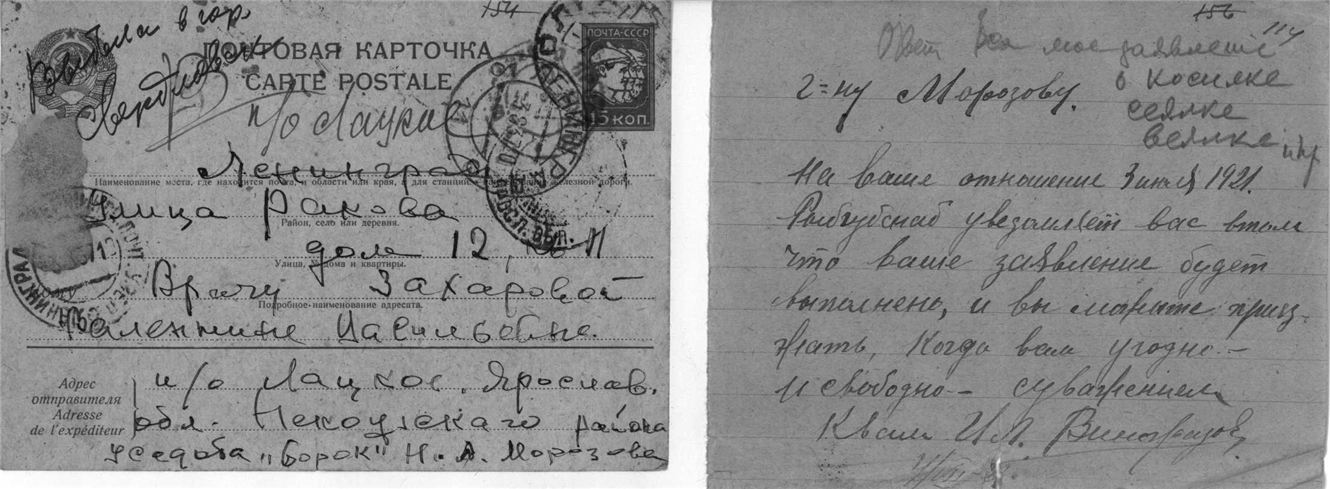 154
Выбыла в гор.
Свердловск
ПОЧТОВАЯ КАРТОЧКА
CARTE POSTALE
ПОЧТА-СССР
15 КОП.
п/о Лацкое
Ленинград
Наименование места, где находится почта, и области или края, а для станций железной дороги.
Улица Ракова
Район, село или деревня.
дом 12, кв. 11
Улица, № дома и квартиры.
Врачу Захаровой
Подробное наименование адресата.
Валентине Васильевне.
Адрес
отправителя
Adresse
de l'expéditeur
п/о Лацкое. Ярослав.
обл. Некоузскаго района
Усадьба „Борок" Н. А. Морозова
156
114
Ответ на мое заявление
о косилке
сеялке
веялке и пр
г=ну Морозову.
На ваше отношение 3 июля 1921.
Рыбгубснаб уведомляет вас втом
что ваше заявление будет
выполнено, и вы можете приез-
жать, когда вам угодно –
и свободно – суважением
Квам И.А. Виноградов